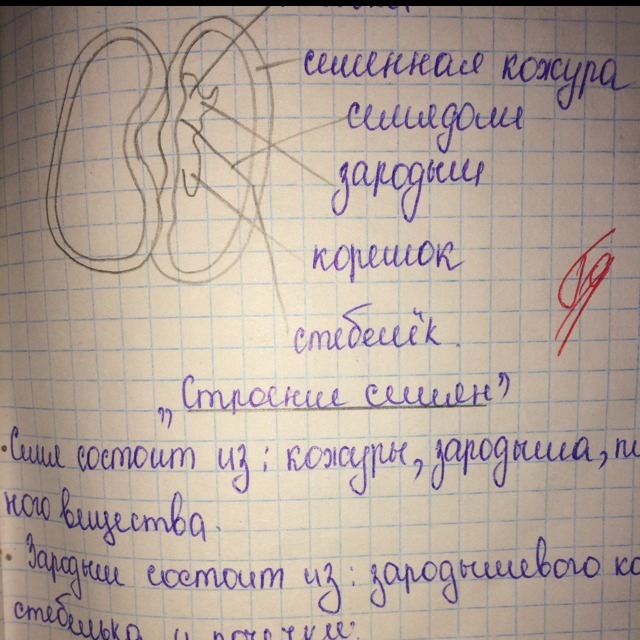 семенная кожура
семядоли
зародыш
корешок
стебелёк.
„Строение семян”
• Семя состоит из: кожуры, зародыша, пи
ного вещества.
• Зародыш состоит из: зародышевого ко
стебелька и почечки.